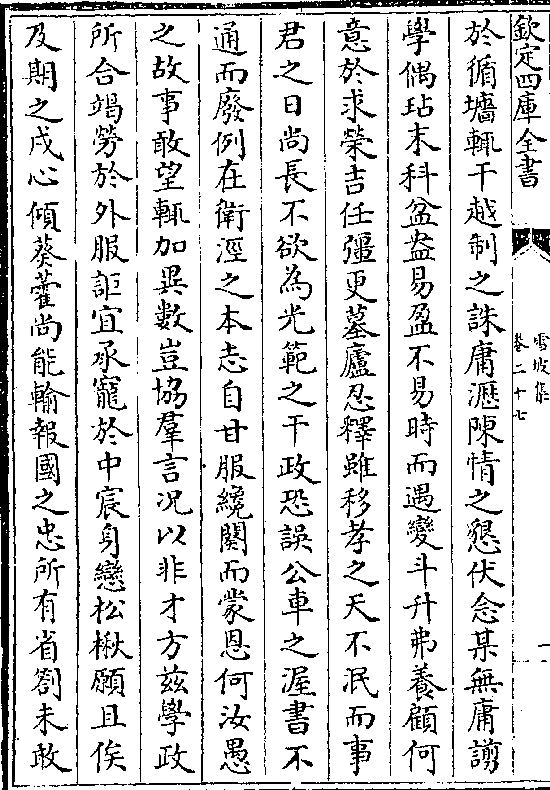 欽定四庫全書
雪坡集
卷二十七
於循墻輒干越制之誅庸瀝陳情之懇伏念某無庸謭
學偶玷末科盆盎易盈不易時而遇變斗升弗養顧何
意於求榮吉任彊更墓廬忍釋雖移孝之天不泯而事
君之日尚長不欲為光範之干政恐誤公車之渥書不
通而廢例在衛淫之本志自甘服纔闋而蒙恩何汝愚
之故事敢望輒加異數豈協羣言况以非才方兹學政
所合竭勞於外服詎宜承寵於中宸身戀松楸願且俟
及期之戍心傾葵藿尚能輸報國之忠所有省劄未敢